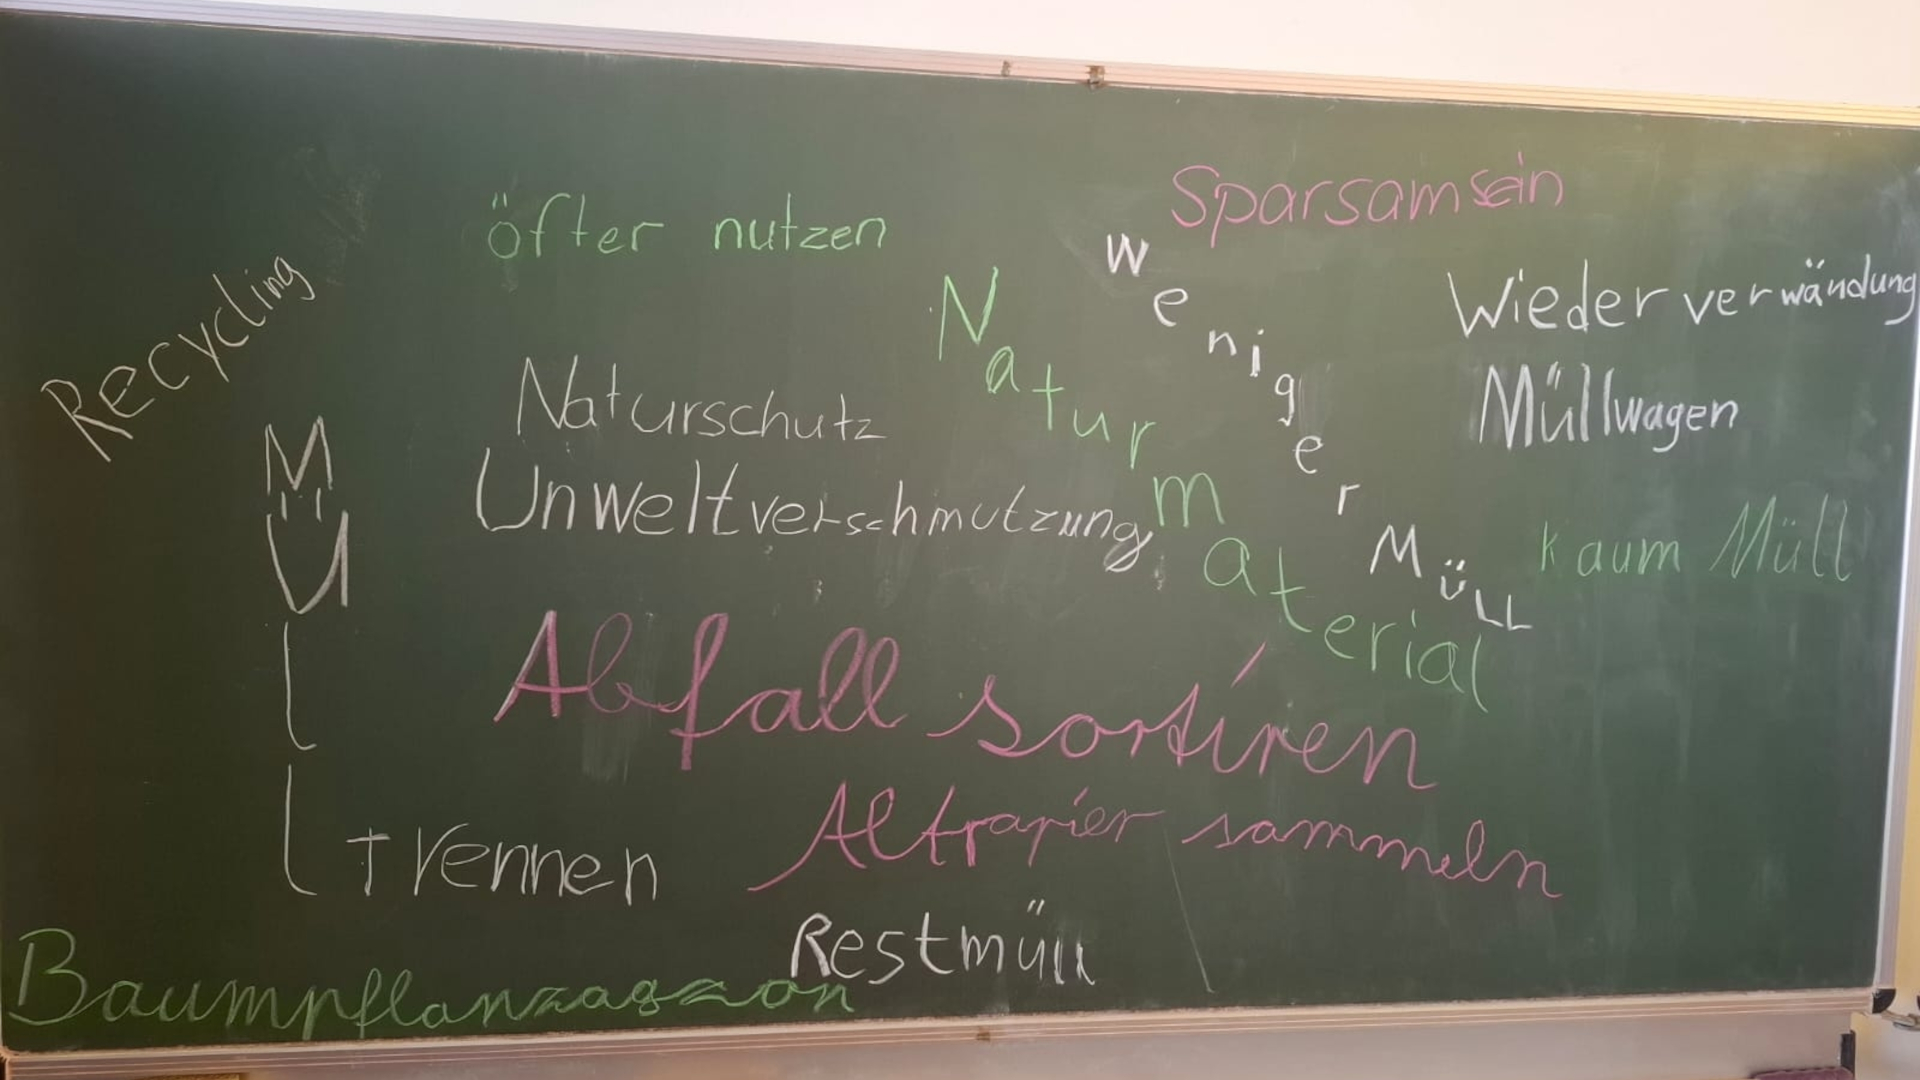 Sparsamsein
öfter nutzen
Recycling
Weniger MüLL
Wiederverwändung
Naturmaterial
Naturschutz
Müllwagen
Unweltverschmutzung
kaum Müll
MÜll trennen
Abfall sortiren
Altpapier sammeln
Restmüll
Baumpflanzagzon